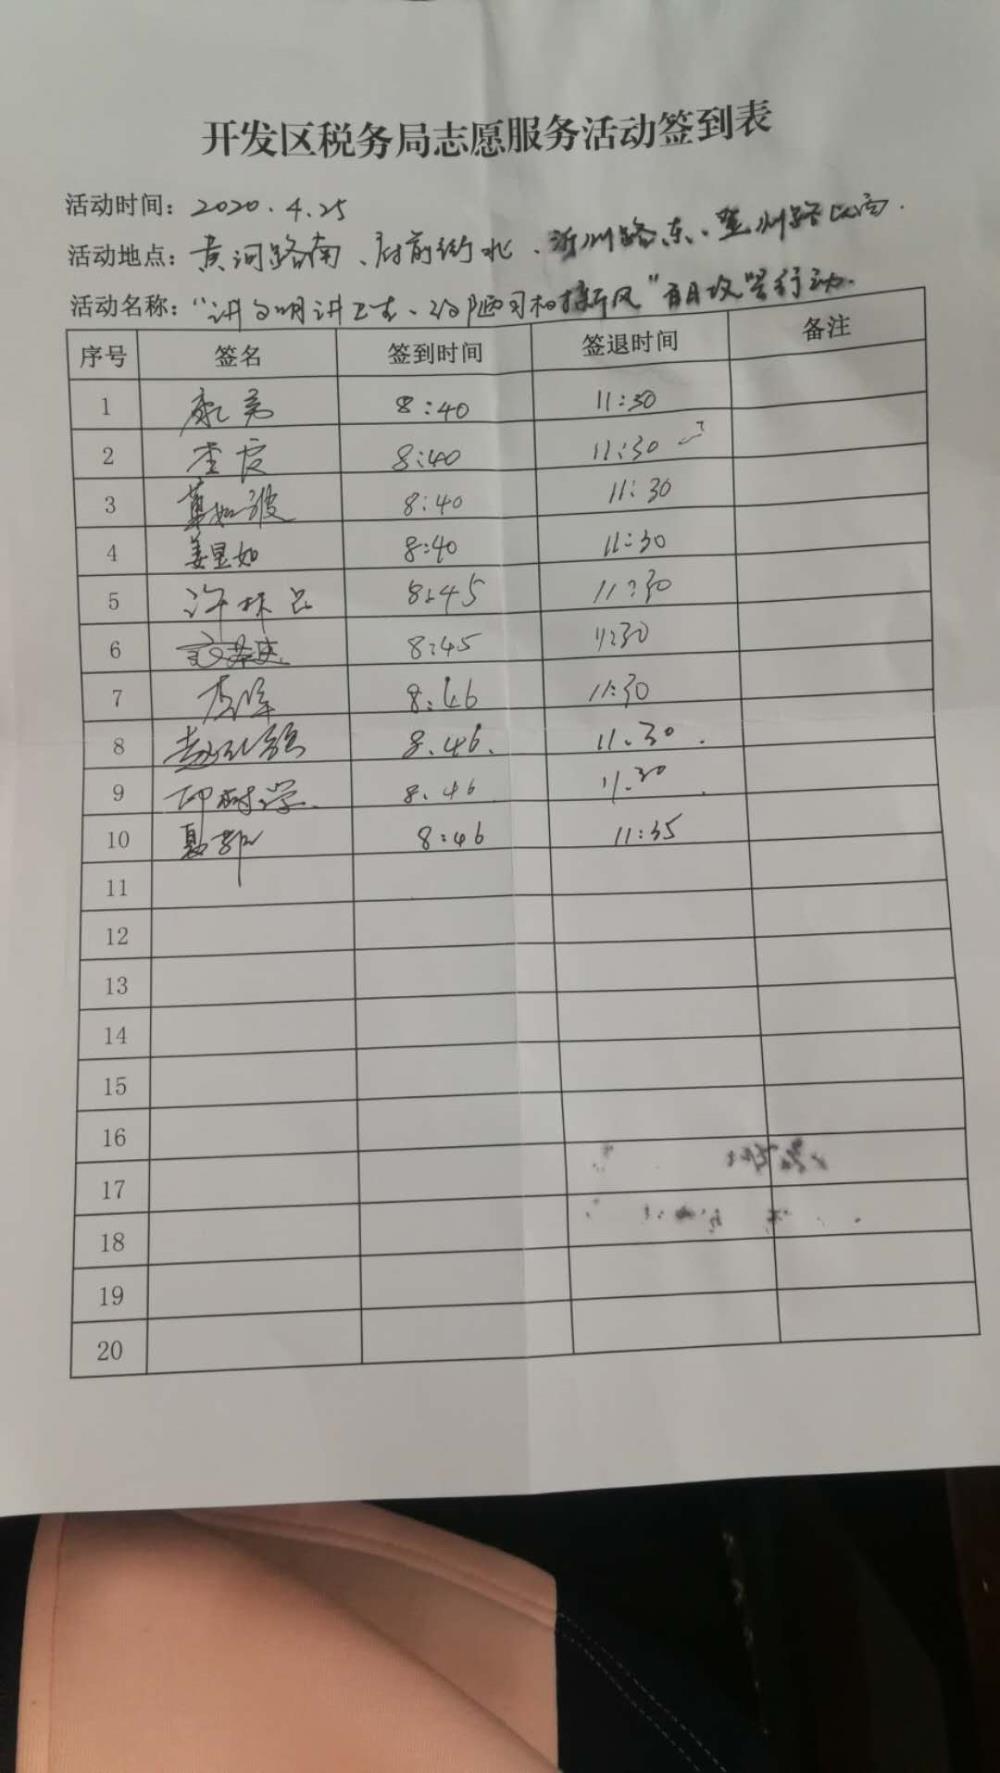 开发区税务局志愿服务活动签到表
活动时间：2020.4.25
活动地点：黄河路南、府前街北、沂州路东、路以西.
活动名称：“讲文明讲卫生、治陋习树新风”百日攻坚行动.
序号 签名 签到时间 签退时间 备注
1 8:40 11:30
2 李 8:40 11:30
3 8:40 11:30
4 姜显如 8:40 11:30
5 许林 8:45 11:30
6 8:45 11:30
7 李峰 8:46 11:30
8 8.46. 11.30.
9 树学. 8.46 11.30
10 夏 8:46 11:35
11
12
13
14
15
16
17
18
19
20